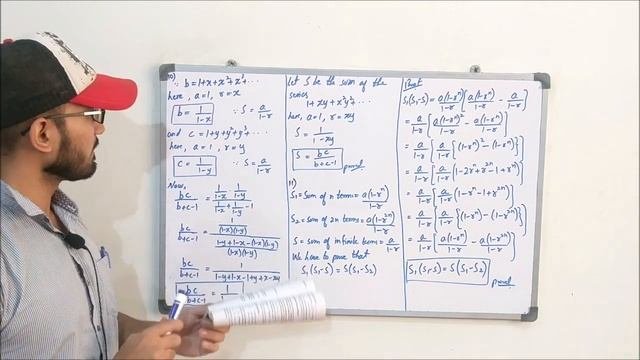 10) ∵ b = 1+x+x²+x³+...
here, a=1, r=x
b = 1/(1-x) ∵ S = a/(1-r)
and c = 1+y+y²+y³+...
here, a=1, r=y
c = 1/(1-y) ∵ S = a/(1-r)
Now,
bc/(b+c-1) = (1/(1-x) · 1/(1-y))/(1/(1-x) + 1/(1-y) - 1)
bc/(b+c-1) = (1/((1-x)(1-y)))/((1-y+1-x-(1-x)(1-y))/((1-x)(1-y)))
bc/(b+c-1) = 1/(1-y+1-x-1+y+x-xy)
bc/(b+c-1) = 1/
Let S be the sum of the
series
1+xy+x²y²+...
here, a=1, r=xy
S = 1/(1-xy)
S = bc/(b+c-1) proved
11)
S₁ = Sum of n terms = a(1-rⁿ)/(1-r)
S₂ = sum of 2n terms = a(1-r²ⁿ)/(1-r)
S = sum of infinite terms = a/(1-r)
We have to prove that
S₁(S₁-S) = S(S₁-S₂)
Proof
S₁(S₁-S) = a(1-rⁿ)/(1-r) {a(1-rⁿ)/(1-r) - a/(1-r)}
= a/(1-r) {a(1-rⁿ)²/(1-r) - a(1-rⁿ)/(1-r)}
= a/(1-r) · a/(1-r) {(1-rⁿ)² - (1-rⁿ)}
= a/(1-r) · a/(1-r) (1-2rⁿ+r²ⁿ-1+rⁿ)
= a/(1-r) · a/(1-r) (1-rⁿ-1+r²ⁿ)
= a/(1-r) · a/(1-r) {(1-rⁿ)-(1-r²ⁿ)}
= a/(1-r) {a(1-rⁿ)/(1-r) - a(1-r²ⁿ)/(1-r)}
S₁(S₁-S) = S(S₁-S₂)
proved